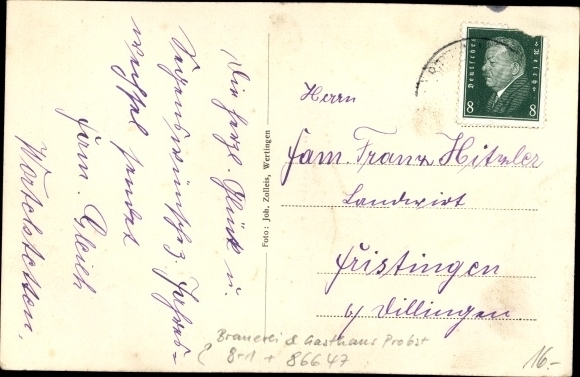 Die herzl. Glück u.
Segenswünsche z. Jahres-
wechsel sendet
Fam. Gleich
Wortelstetten,
Foto: Joh. Zolleis, Wertingen
Deutsches Reich
8 8
Herrn
Fam. Franz Hitzler
Landwirt
Fristingen
b/ Dillingen.
Brauerei & Gasthaus Probst
8-1 + 86647
16.-